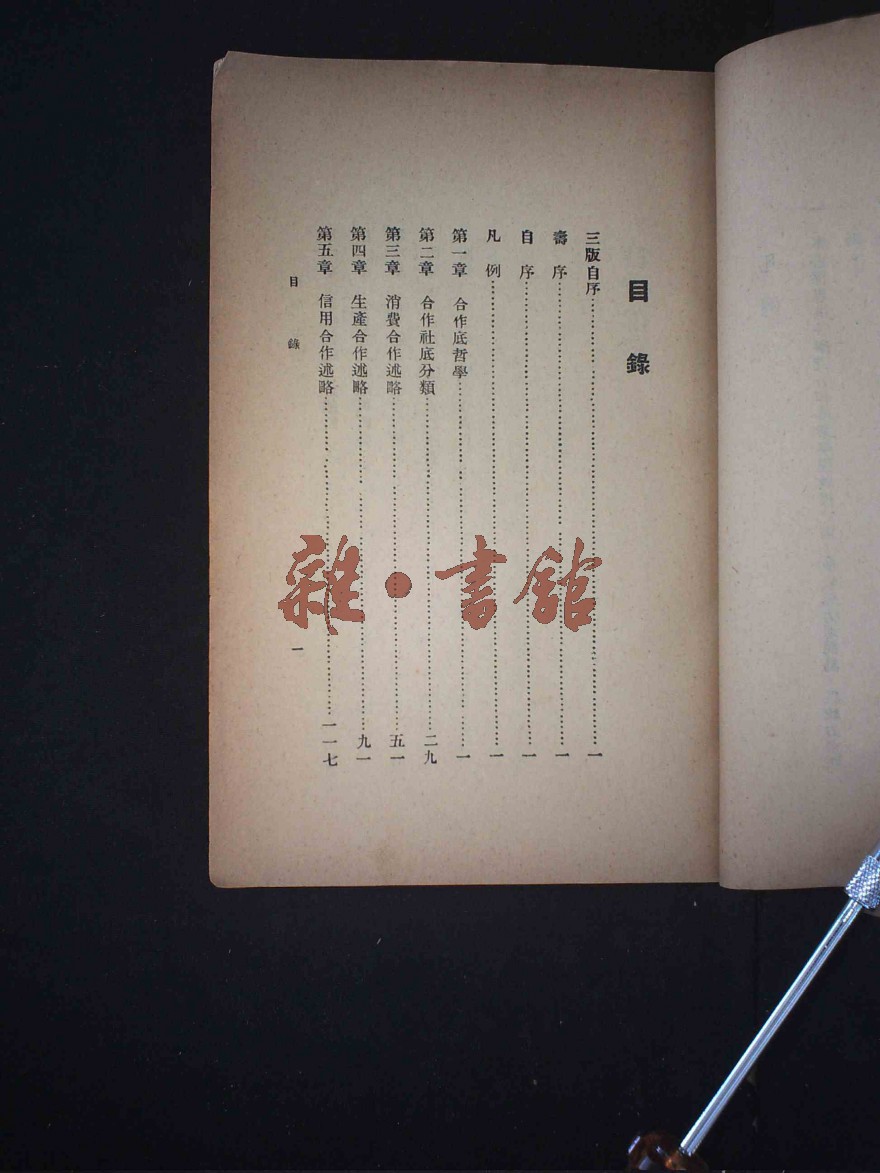 目錄
三版自序……一
壽序……一
自序……一
凡例……一
第一章 合作底哲學……一
第二章 合作社底分類……二九
第三章 消費合作述略……五一
第四章 生產合作述略……九一
第五章 信用合作述略……一一七
目錄 一
雜·書館